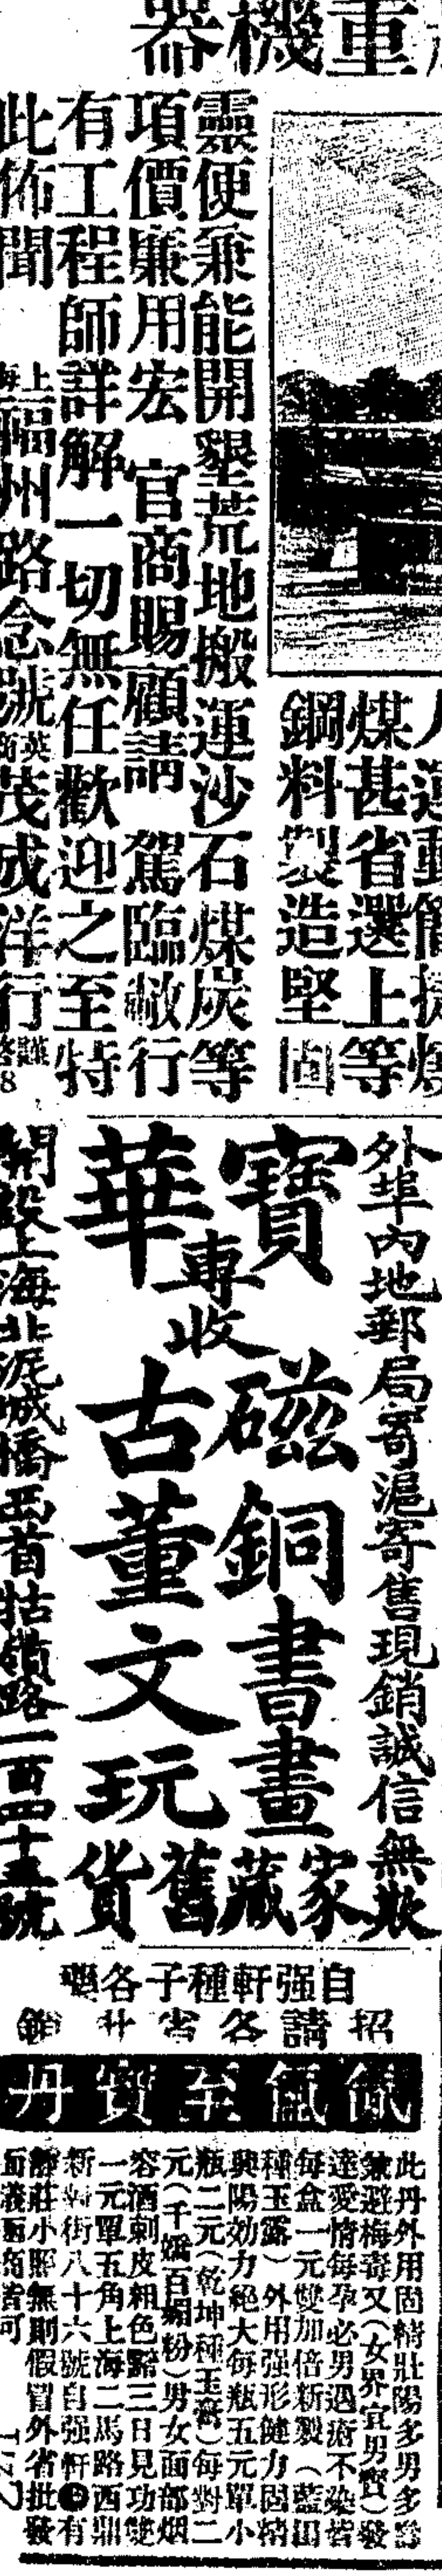 重機器
人運動簡捷燒
煤甚省選上等
鋼料製造堅固
靈便兼能開墾荒地搬運沙石煤炭等
項價廉用宏 官商賜顧請 駕臨敝行
有工程師詳解一切無任歡迎之至特
此佈聞 上海福州路念號英商茂成洋行謹啓8
外埠內地郵局寄滬寄售現銷誠信無欺
寶華
專收
磁銅書畫家藏
古董文玩舊貨
開設上海北泥城橋西首牯嶺路一百四十五號
自强軒種子各藥
招請各省分銷
至寶丹
此丹外用固精壯陽多男多壽
兼避梅毒又(女界宜男寶)發
達愛情每孕必男遇瘡不染皆
每盒一元雙加倍新製(藍田
種玉露)外用强形健力固精
興陽効力絕大每瓶五元單小
瓶二元(乾坤種玉膏)每對二
元(千嬌百媚粉)男女面部烟
容酒刺皮粗色黯三日見功雙
一元單五角上海二馬路西鼎
新對街八十六號自强軒有
莊小照無則假冒外省批發
面議函商皆可